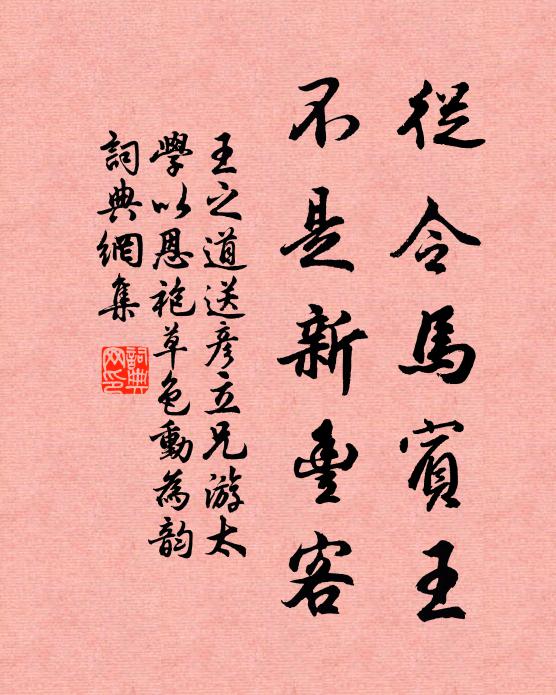 從令馬賓王
不是新豐客
王之道送彥立兄游太
學以恩袍草色動為韵
詞典網集
詞典
网印